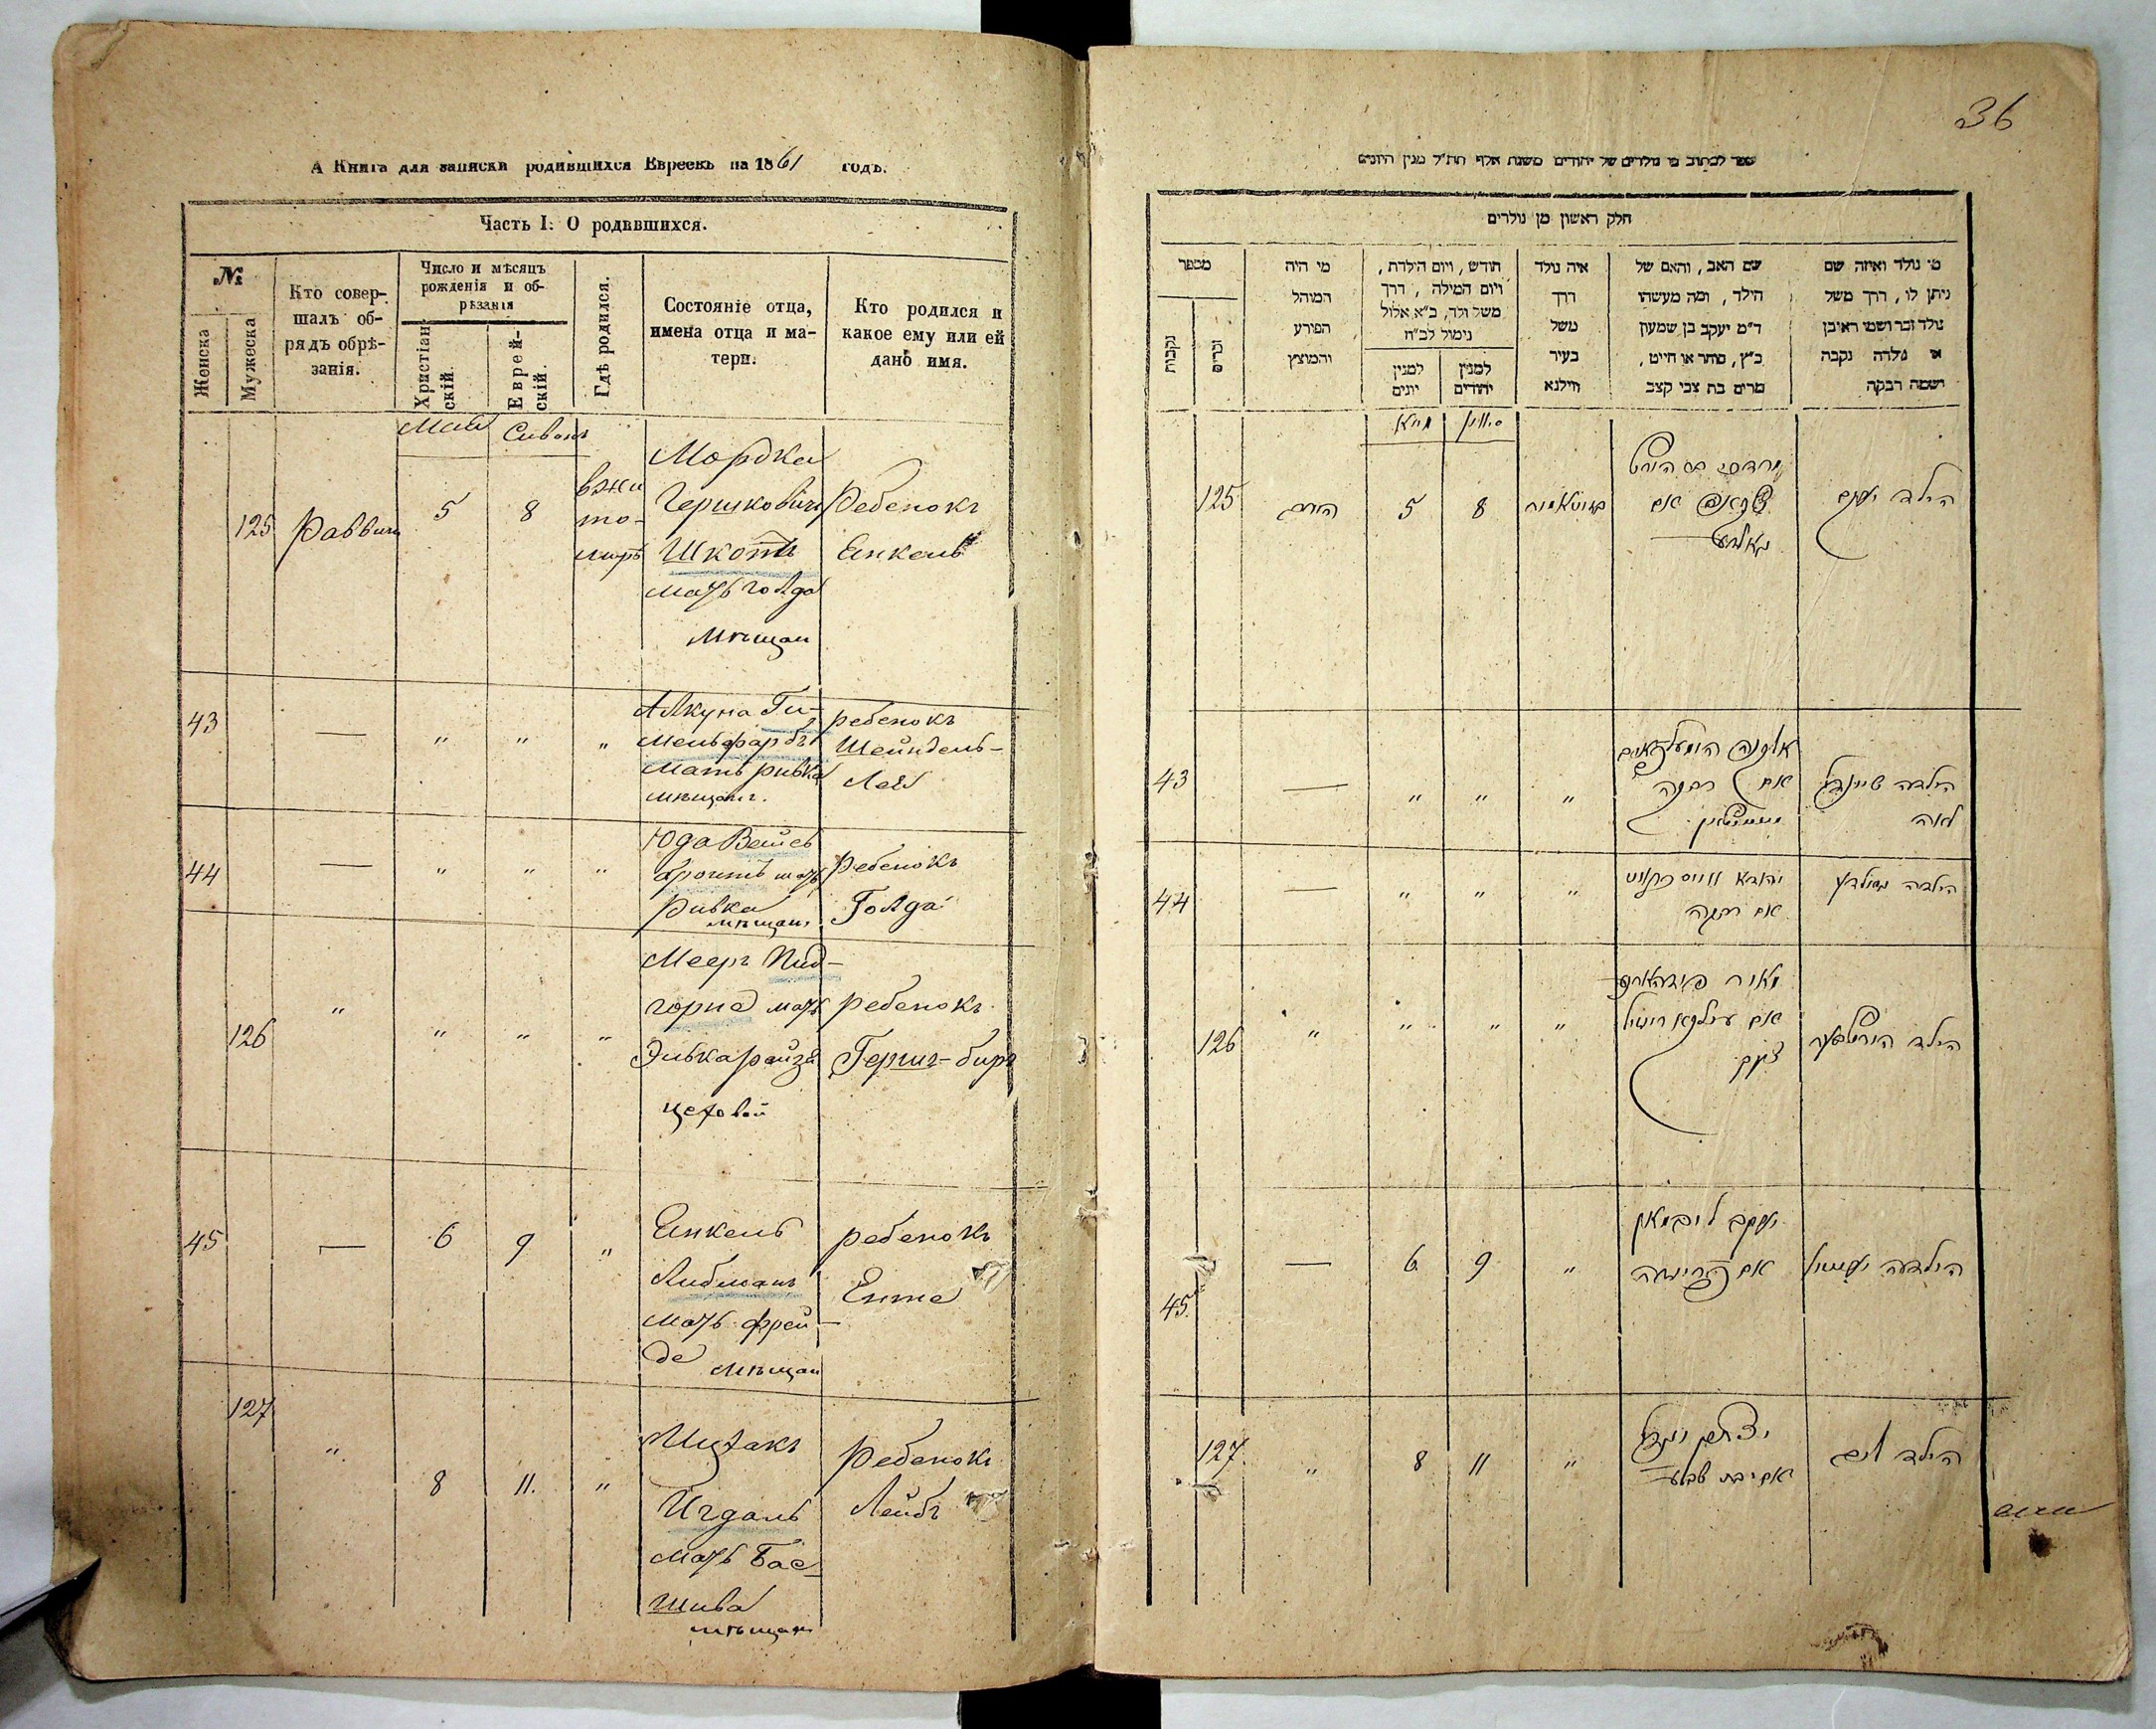 А Книга для записки родившихся Евреевъ на 1861 годъ.
Часть I: О родившихся.
№
Женска
Мужеска
Кто совер-
шалъ об-
рядъ обрѣ-
занія.
Число и мѣсяцъ
рожденія и об-
рѣзанія
Христіан-
скій.
Еврей-
скій.
Гдѣ родился.
Состояніе отца,
имена отца и ма-
тери.
Кто родился и
какое ему или ей
дано имя.
Май Сиванъ
125 Раввинъ 5 8
вжи
то-
миръ
Мордка
Гершковичъ
Шкотъ
мать Голда
Мѣщан
Ребенокъ
Енкель
43 — " " "
Алкуна Ги-
мельфарбъ
мать Ривка
мѣщан.
ребенокъ
Шейндель-
Лея
44 — " " "
Юда Вайсб
мать
Ривка
мѣщан.
Ребенокъ
Голда
126 " " " "
Мееръ Пид-
горна мать
Элька райзя
цеховой
ребенокъ
Гершъ-беръ
45 — 6 9 "
Енкель
Либманъ
мать Фрей-
де мѣщан
ребенокъ
Ента
127 " 8 11. "
Ицхакъ
Игдаль
мать Бас-
шива
мѣщан
Ребенокъ
Лейбъ
36
ספר לכתוב בו נולדים של יהודים משנת אלף תת״ל מנין היונים
חלק ראשון מן נולדים
מספר
נקבות
זכרים
מי היה
המוהל
הפורע
והמוצץ
חודש, ויום הילדת,
ויום המילה, דרך
משל ולד, כ״א אלול
נימול לכ״ח
למנין
יונים
למנין
יהודים
איה נולד
דרך
משל
בעיר
ווילנא
שם האב, והאם של
הילד, ומה מעשהו
ד״מ יעקב בן שמעון
כ״ץ, סוחר או חייט,
מרים בת צבי קצב
מי נולד ואיזה שם
ניתן לו, דרך משל
נולד זכר ושמו ראובן
או נולדה נקבה
ושמה רבקה
מייא סיוון
125 הרב 5 8
הילד יעקב
43 — " " "
אלקנה
אם רבקה
הילדה שיינדל
לאה
44 — " " "
יהודא
אם רבקה
הילדה גאלדע
126 " " " "
מאיר
הילד
45. — 6 9 "
יעקב ליבמאן
אם פריידע
הילדה יענטיל
127. " 8 11 "
יצחק יגדל
אם בת שבע
הילד ליב